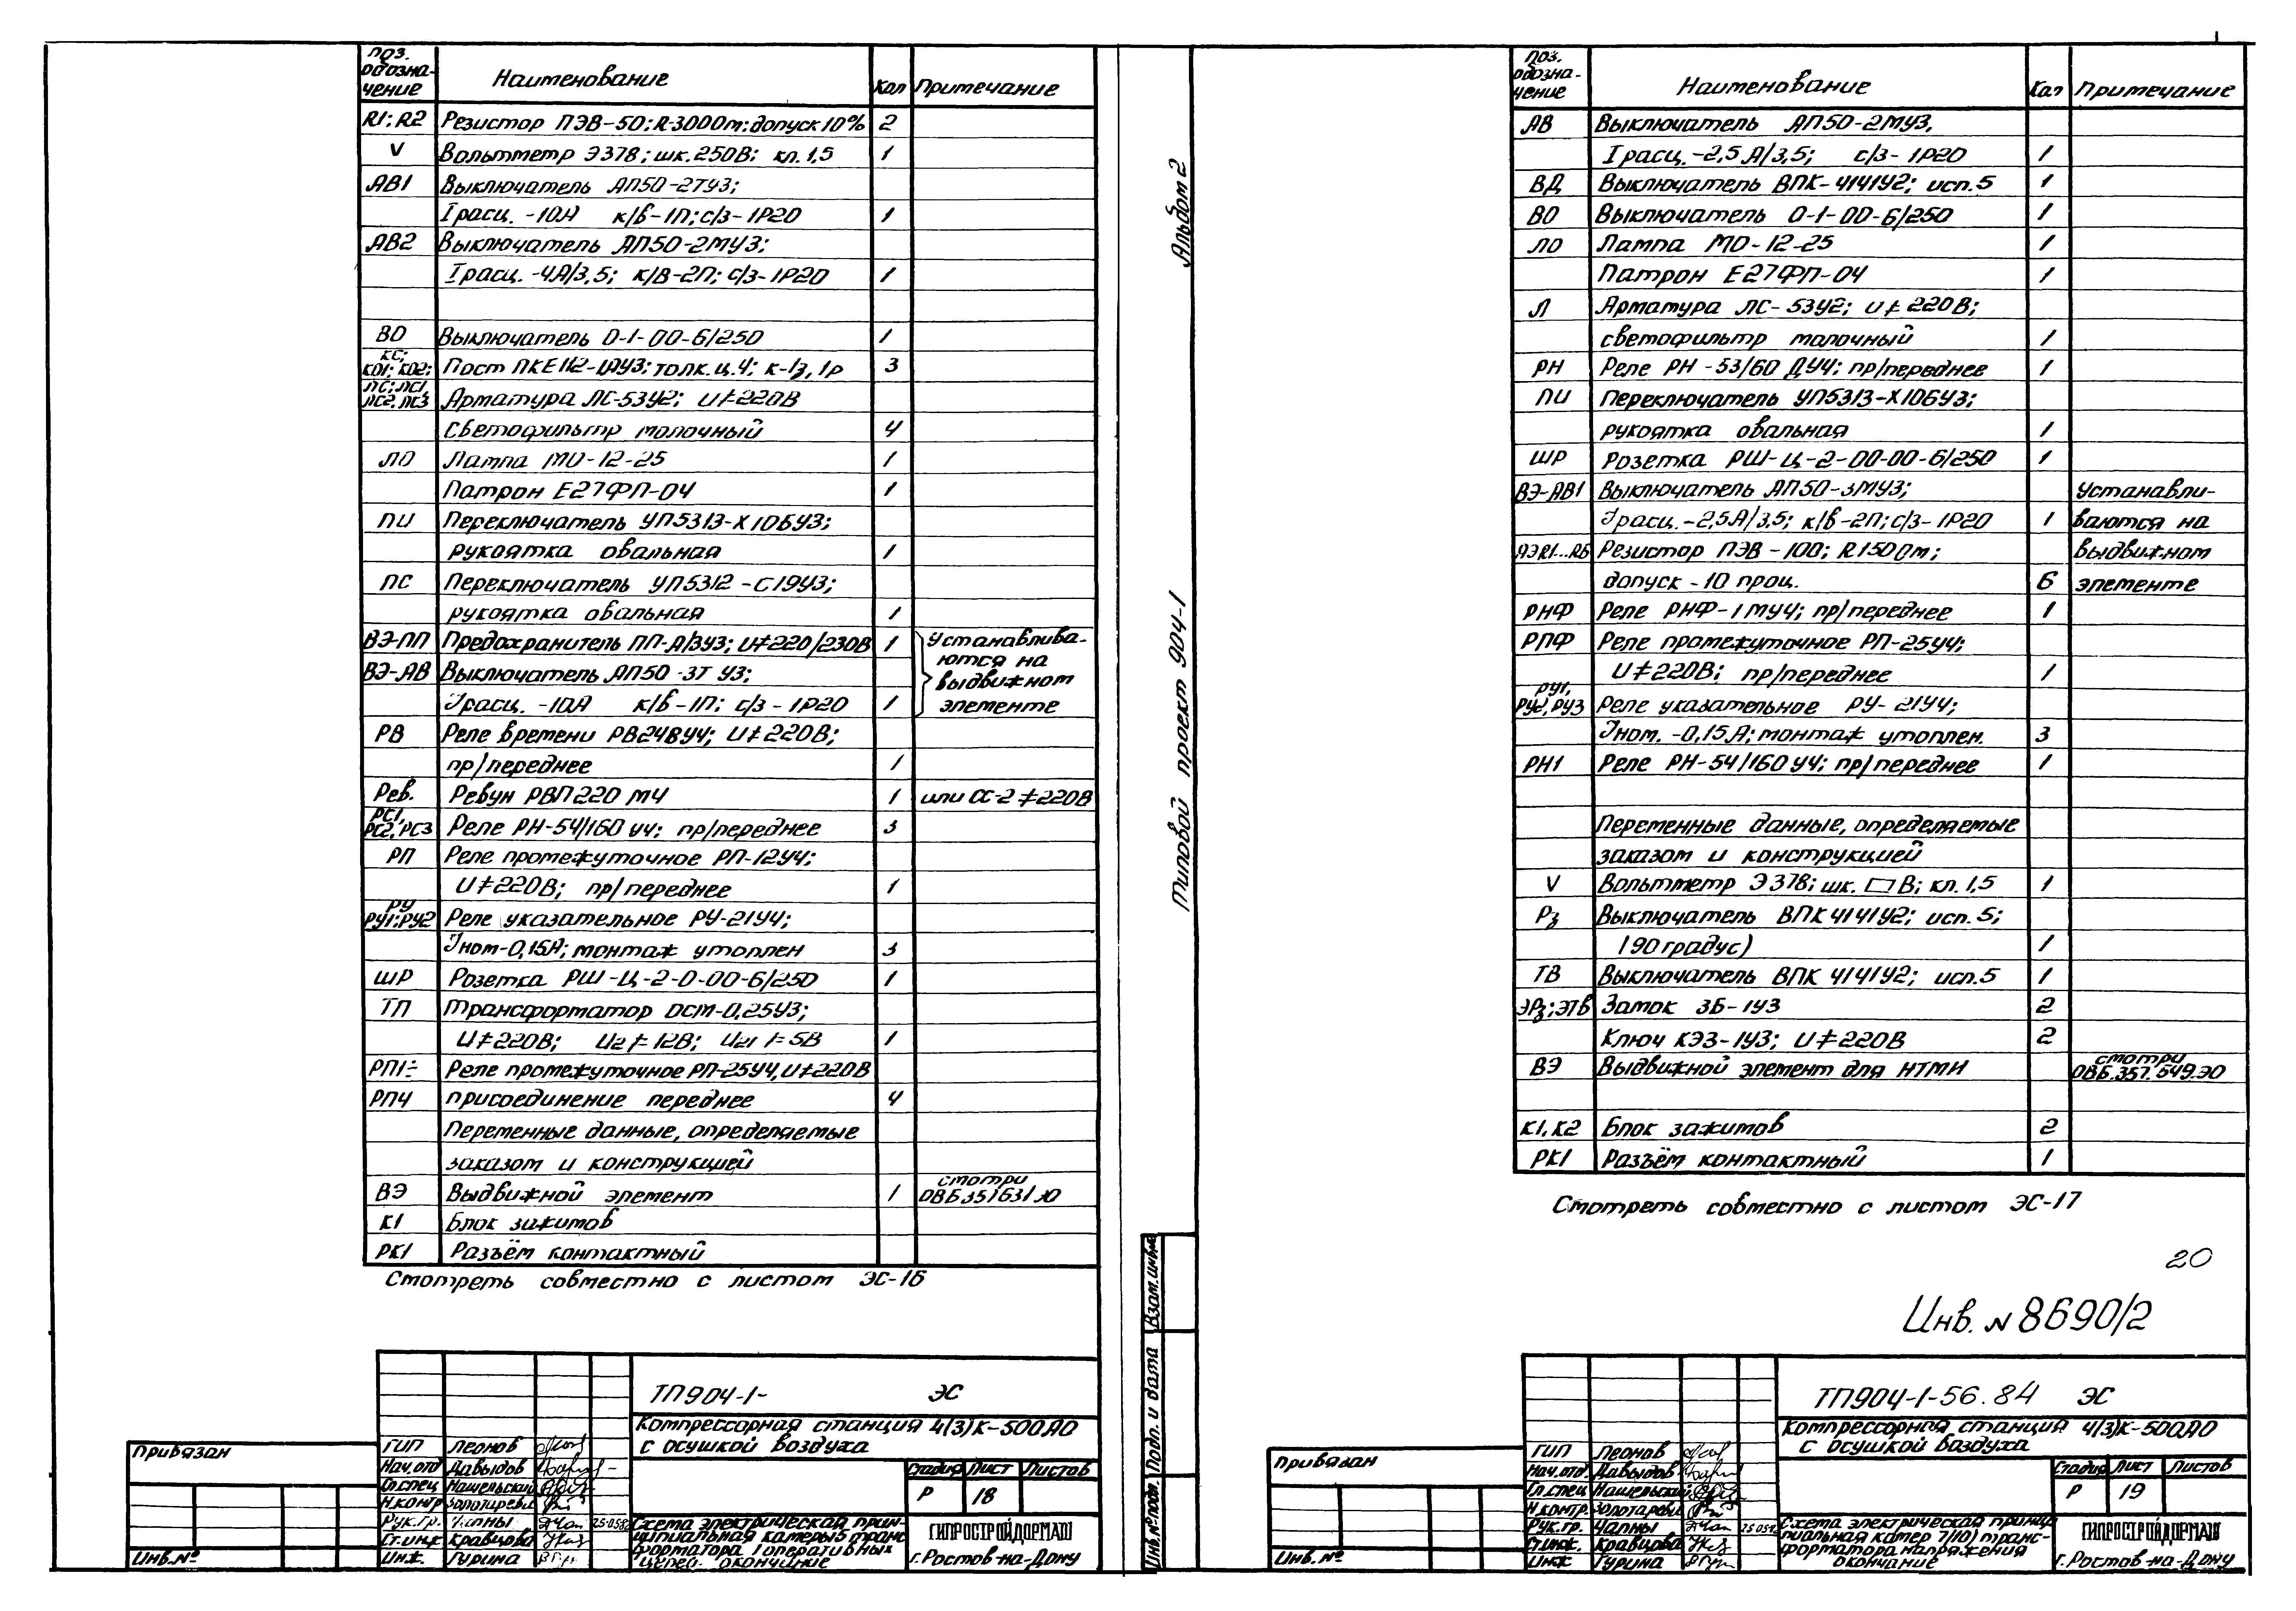 Поз. обозна- чение Наименование Кол Примечание
R1; R2 Резистор ПЭВ-50; R-300Ом; допуск 10% 2
V Вольтметр Э378; шк. 250В; кл. 1,5 1
АВ1 Выключатель АП50-2ТУЗ;
Iрасц. -10А к/в-1П; с/з-1Р20 1
АВ2 Выключатель АП50-2МУЗ;
Iрасц. -4А/3,5; к/в-2П; с/з-1Р20 1
ВО Выключатель О-1-00-6/250 1
КС; КО1; КО2; Пост ПКЕ112-1АУЗ; толк. ц. Ч; к-1з, 1р 3
ЛС; ЛС1, ЛС2, ЛС3 Арматура ЛС-53У2; U≠220В
светофильтр молочный 4
ЛО Лампа МО-12-25 1
Патрон Е27ФП-04 1
ПИ Переключатель УП5313-Х106УЗ;
рукоятка овальная 1
ПС Переключатель УП5312-С19УЗ;
рукоятка овальная 1
ВЭ-ПП Предохранитель ПП-А/3УЗ; U≠220/230В 1 Устанавлива-
ются на
ВЭ-АВ Выключатель АП50-3Т УЗ; выдвижном
Iрасц. -10А к/в-1П; с/з-1Р20 1 элементе
РВ Реле времени РВ248У4; U≠220В;
пр/переднее 1
Рев. Ревун РВП220 М4 1 или СС-2 ≠220В
РС1, РС2, РС3 Реле РН-54/160 У4; пр/переднее 3
РП Реле промежуточное РП-12У4;
U≠220В; пр/переднее 1
РУ РУ1; РУ2 Реле указательное РУ-21У4;
Iном-0,15А; монтаж утоплен 3
ШР Розетка РШ-Ц-2-0-00-6/250 1
ТП Трансформатор ОСМ-0,25УЗ;
U≠220В; U2≠12В; U21≠5В 1
РП1÷ Реле промежуточное РП-25У4, U≠220В
РП4 присоединение переднее 4
Переменные данные, определяемые
заказом и конструкцией
ВЭ Выдвижной элемент 1 смотри ОВБ.357.631 Э0
К1 Блок зажимов
РК1 Разъём контактный
Смотреть совместно с листом ЭС-16
ТП904-1- ЭС
Компрессорная станция 4(3)К-500АО
с осушкой воздуха
Привязан
Инв.№
ГИП Леонов
Нач.отд Давыдов
Гл.спец Нашельский
Н.контр Золотарева
Рук.гр. Чапны
Ст.инж Кравцова
Инж. Гурина
Стадия Лист Листов
Р 18
Схема электрическая прин-
ципиальная камеры 5 транс-
форматора оперативных
цепей. окончание
ГИПРОСТРОЙДОРМАШ
г. Ростов-на-Дону
Альбом 2
Типовой проект 904-1
Взам.инв.№
Подп. и дата
Инв.№ подл.
Поз. обозна- чение Наименование Кол Примечание
АВ Выключатель АП50-2МУЗ,
Iрасц. -2,5А/3,5; с/з-1Р20 1
ВД Выключатель ВПК-4141У2; исп. 5 1
ВО Выключатель О-1-00-6/250 1
ЛО Лампа МО-12-25 1
Патрон Е27ФП-04 1
Л Арматура ЛС-53У2; U≠220В;
светофильтр молочный 1
РН Реле РН-53/60 ДУ4; пр/переднее 1
ПИ Переключатель УП5313-Х106УЗ;
рукоятка овальная 1
ШР Розетка РШ-Ц-2-00-00-6/250 1
ВЭ-АВ1 Выключатель АП50-3МУЗ; Устанавли-
Iрасц. -2,5А/3,5; к/в-2П; с/з-1Р20 1 ваются на
ВЭR1...R6 Резистор ПЭВ-100; R150Ом; выдвижном
допуск -10 проц. 6 элементе
РНФ Реле РНФ-1МУ4; пр/переднее 1
РПФ Реле промежуточное РП-25У4;
U≠220В; пр/переднее 1
РУ1, РУ2, РУ3 Реле указательное РУ-21У4;
Iном. -0,15А; монтаж утоплен. 3
РН1 Реле РН-54/160 У4; пр/переднее 1
Переменные данные, определяемые
заказом и конструкцией
V Вольтметр Э378; шк. ▭ В; кл. 1,5 1
Рз Выключатель ВПК 4141У2; исп. 5;
(90градус) 1
ТВ Выключатель ВПК 4141У2; исп. 5 1
ЭРз; ЭТВ Замок ЗБ-1УЗ 2
Ключ КЭЗ-1УЗ; U≠220В 2
ВЭ Выдвижной элемент для НТМИ смотри ОВБ.357.549.Э0
К1, К2 Блок зажимов 2
РК1 Разъём контактный 1
Смотреть совместно с листом ЭС-17
20
Инв. № 8690/2
ТП904-1-56.84 ЭС
Компрессорная станция 4(3)К-500АО
с осушкой воздуха
Привязан
Инв.№
ГИП Леонов
Нач.отд Давыдов
Гл.спец Нашельский
Н.контр. Золотарева
Рук.гр. Чапны
Ст.инж. Кравцова
Инж Гурина
Стадия Лист Листов
Р 19
Схема электрическая принци-
пиальная камер 7(10) транс-
форматора напряжения
окончание
ГИПРОСТРОЙДОРМАШ
г. Ростов-на-Дону